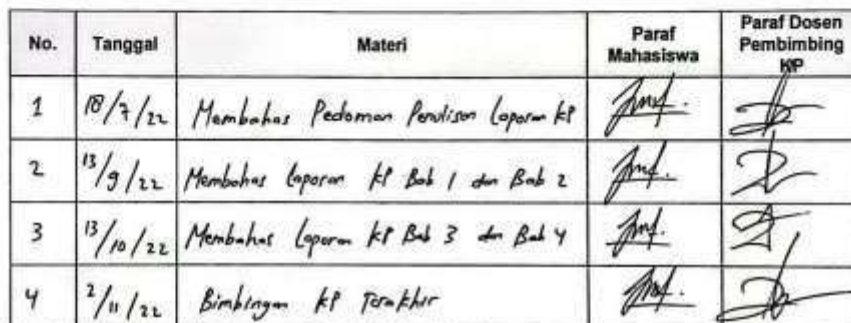 No. Tanggal Materi Paraf Mahasiswa Paraf Dosen Pembimbing KP
1 18/7/22 Membahas Pedoman Penulisan Laporan KP
2 13/9/22 Membahas Laporan KP Bab 1 dan Bab 2
3 13/10/22 Membahas Laporan KP Bab 3 dan Bab 4
4 2/11/22 Bimbingan KP Terakhir